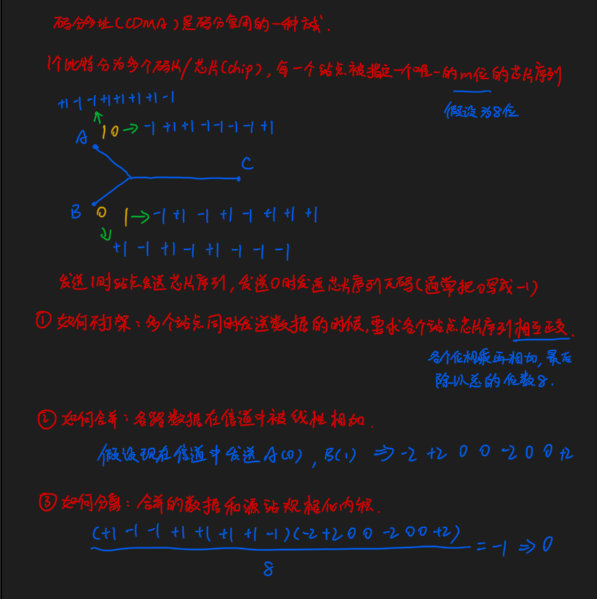 码分多址(CDMA)是码分复用的一种方式.
1个比特分为多个码片/芯片(chip),每一个站点被指定一个唯一的m位的芯片序列
假设为8位
+1 -1 -1 +1 +1 +1 +1 -1
A 1 0 → -1 +1 +1 -1 -1 -1 -1 +1
C
B 0 1 → -1 +1 -1 +1 -1 +1 +1 +1
+1 -1 +1 -1 +1 -1 -1 -1
发送1时站点发送芯片序列,发送0时发送芯片序列反码(通常把0写成-1)
① 如何不打架:多个站点同时发送数据的时候,要求各个站点芯片序列相互正交.
各个位相乘再相加,最后
除以总的位数8.
② 如何合并:各路数据在信道中被线性相加.
假设现在信道中发送A(0),B(1) ⇒ -2 +2 0 0 -2 0 0 +2
③ 如何分离:合并的数据和源站规格化内积.
(+1 -1 -1 +1 +1 +1 +1 -1)(-2 +2 0 0 -2 0 0 +2)
= -1 ⇒ 0
8